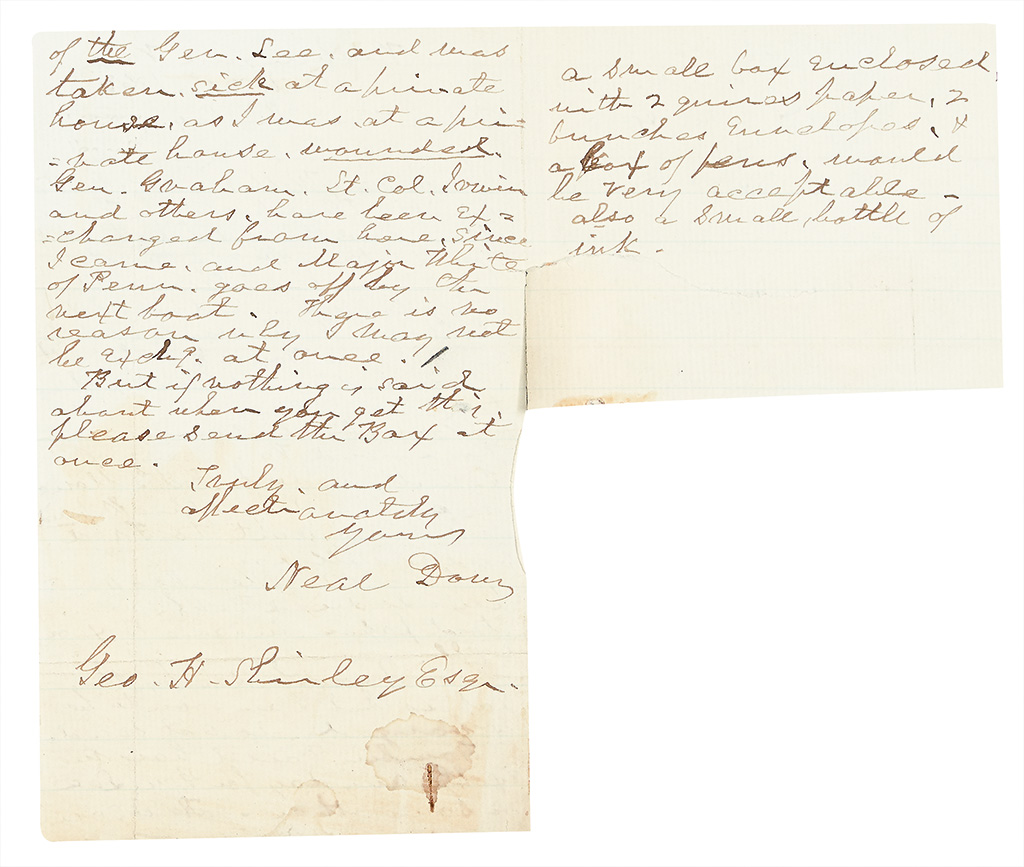 of the Gen. Lee. and was
taken sick at a private
house, as I was, at a pri-
-vate house. wounded.
Gen. Graham. Lt. Col. Irwin
and others, have been ex=
=changed from here, since
I came, and Major White
of Penn. goes off by the
next boat. There is no
reason why I may not
be exchg. at once.
But if nothing is said
about when you get this,
please send the Box at
once.
Truly and
affectionately
Yours
Neal Dow
Geo. H. Shirley Esqr.
a small box enclosed,
with 2 quires paper, 2
bunches envelopes, &
a box of pens, would
be very acceptable -
also a small bottle of
ink.